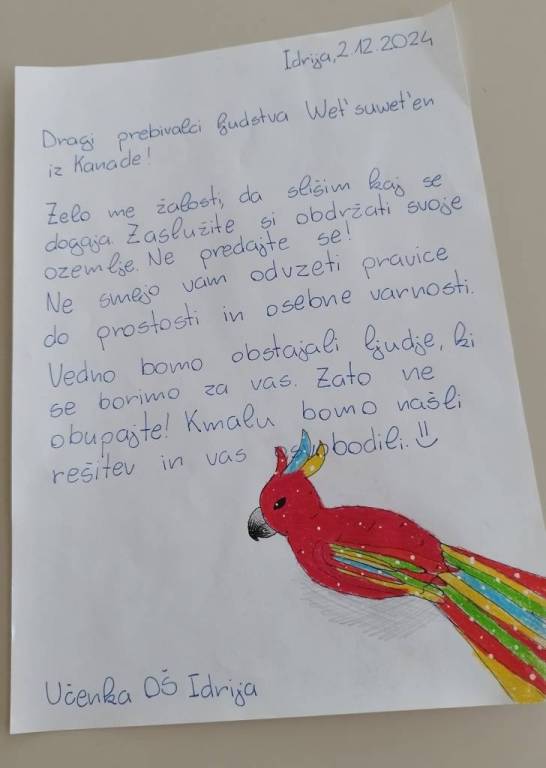 Idrija, 2.12.2024
Dragi prebivalci ljudstva Wet'suwet'en
iz Kanade!
Zelo me žalosti, da slišim kaj se
dogaja. Zaslužite si obdržati svoje
ozemlje. Ne predajte se!
Ne smejo vam odvzeti pravice
do prostosti in osebne varnosti.
Vedno bomo obstajali ljudje, ki
se borimo za vas. Zato ne
obupajte! Kmalu bomo našli
rešitev in vas osvobodili.
Učenka OŠ Idrija